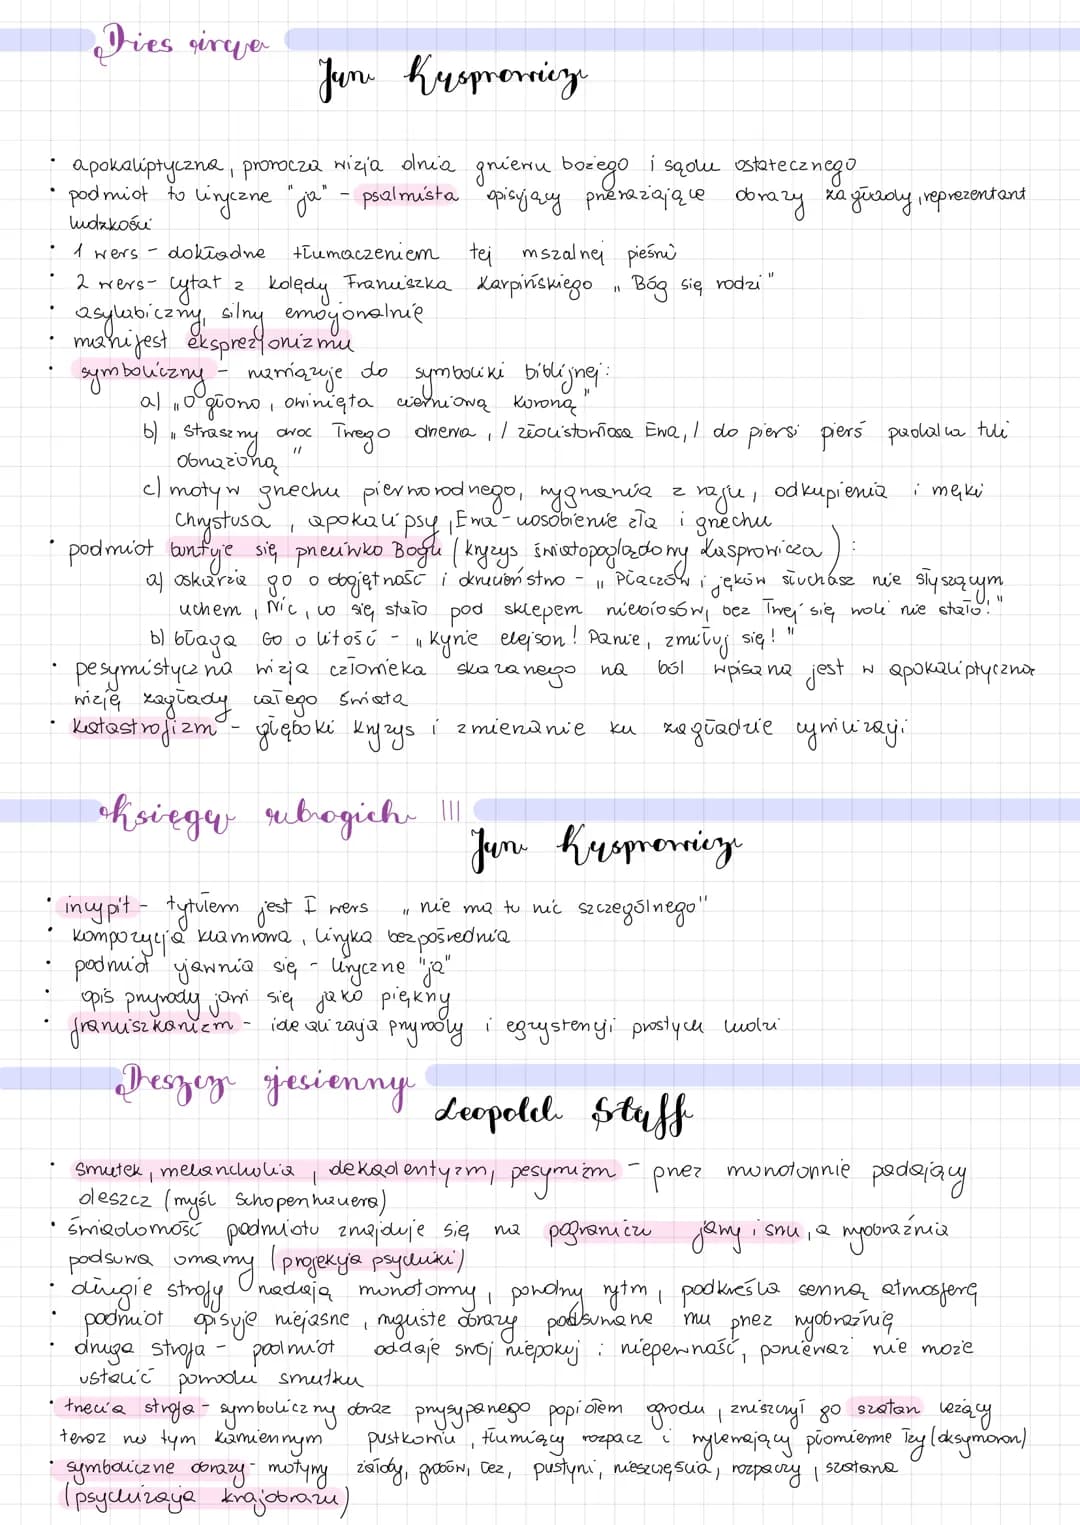 Dies irae
Jan Kasprowicz
• apokaliptyczna, prorocza wizja dnia gniewu bożego i sądu ostatecznego
• podmiot to liryczne "ja" - psalmista opisujący przerażające obrazy zagłady, reprezentant
ludzkości
• 1 wers - dokładne tłumaczeniem tej mszalnej pieśni
• 2 wers - cytat z kolędy Franciszka Karpińskiego „Bóg się rodzi"
• asylabiczny, silny emocjonalnie
• manifest ekspresjonizmu
• symboliczny - nawiązuje do symboliki biblijnej:
a) „O głowo, owinięta cierniową koroną"
b) „Straszny owoc Twego drzewa, / złocistowłosa Ewa, / do piersi pierś padalca tuli
obnażoną"
c) motyw grzechu pierworodnego, wygnania z raju, odkupienia i męki
Chrystusa, apokalipsy, Ewa - uosobienie zła i grzechu
• podmiot buntuje się przeciwko Bogu (kryzys światopoglądowy Kasprowicza):
a) oskarża go o obojętność i okrucieństwo - „Płaczów i jęków słuchasz nie słyszącym
uchem, Nic, co się stało pod sklepem niebiosów, bez Twej się woli nie stało!"
b) błaga Go o litość - „Kyrie elejson! Panie, zmiłuj się!"
• pesymistyczna wizja człowieka skazanego na ból wpisana jest w apokaliptyczną
wizję zagłady całego świata
• katastrofizm - głęboki kryzys i zmierzanie ku zagładzie cywilizacji
Księga ubogich III
Jan Kasprowicz
• incypit - tytułem jest I wers „nie ma tu nic szczególnego"
• kompozycja klamrowa, liryka bezpośrednia
• podmiot ujawnia się - liryczne "ja"
• opis przyrody jawi się jako piękny
• franciszkanizm - idealizacja przyrody i egzystencji prostych ludzi
Deszcz jesienny
Leopold Staff
• smutek, melancholia, dekadentyzm, pesymizm - przez monotonnie padający
deszcz (myśl Schopenhauera)
• świadomość podmiotu znajduje się na pograniczu jawy i snu, a wyobraźnia
podsuwa omamy (projekcja psychiki)
• długie strofy nadają monotonny, powolny rytm, podkreśla senną atmosferę
• podmiot opisuje niejasne, mgliste obrazy podsuwane mu przez wyobraźnię
• druga strofa - podmiot oddaje swój niepokój i niepewność, ponieważ nie może
ustalić powodu smutku
• trzecia strofa - symboliczny obraz przysypanego popiołem ogrodu, zniszczył go szatan leżący
teraz na tym kamiennym pustkowiu, tłumiący rozpacz i wylewający płomienne łzy (oksymoron)
• symboliczne obrazy - motywy żałoby, grobów, łez, pustyni, nieszczęścia, rozpaczy, szatana
(psychizacja krajobrazu)